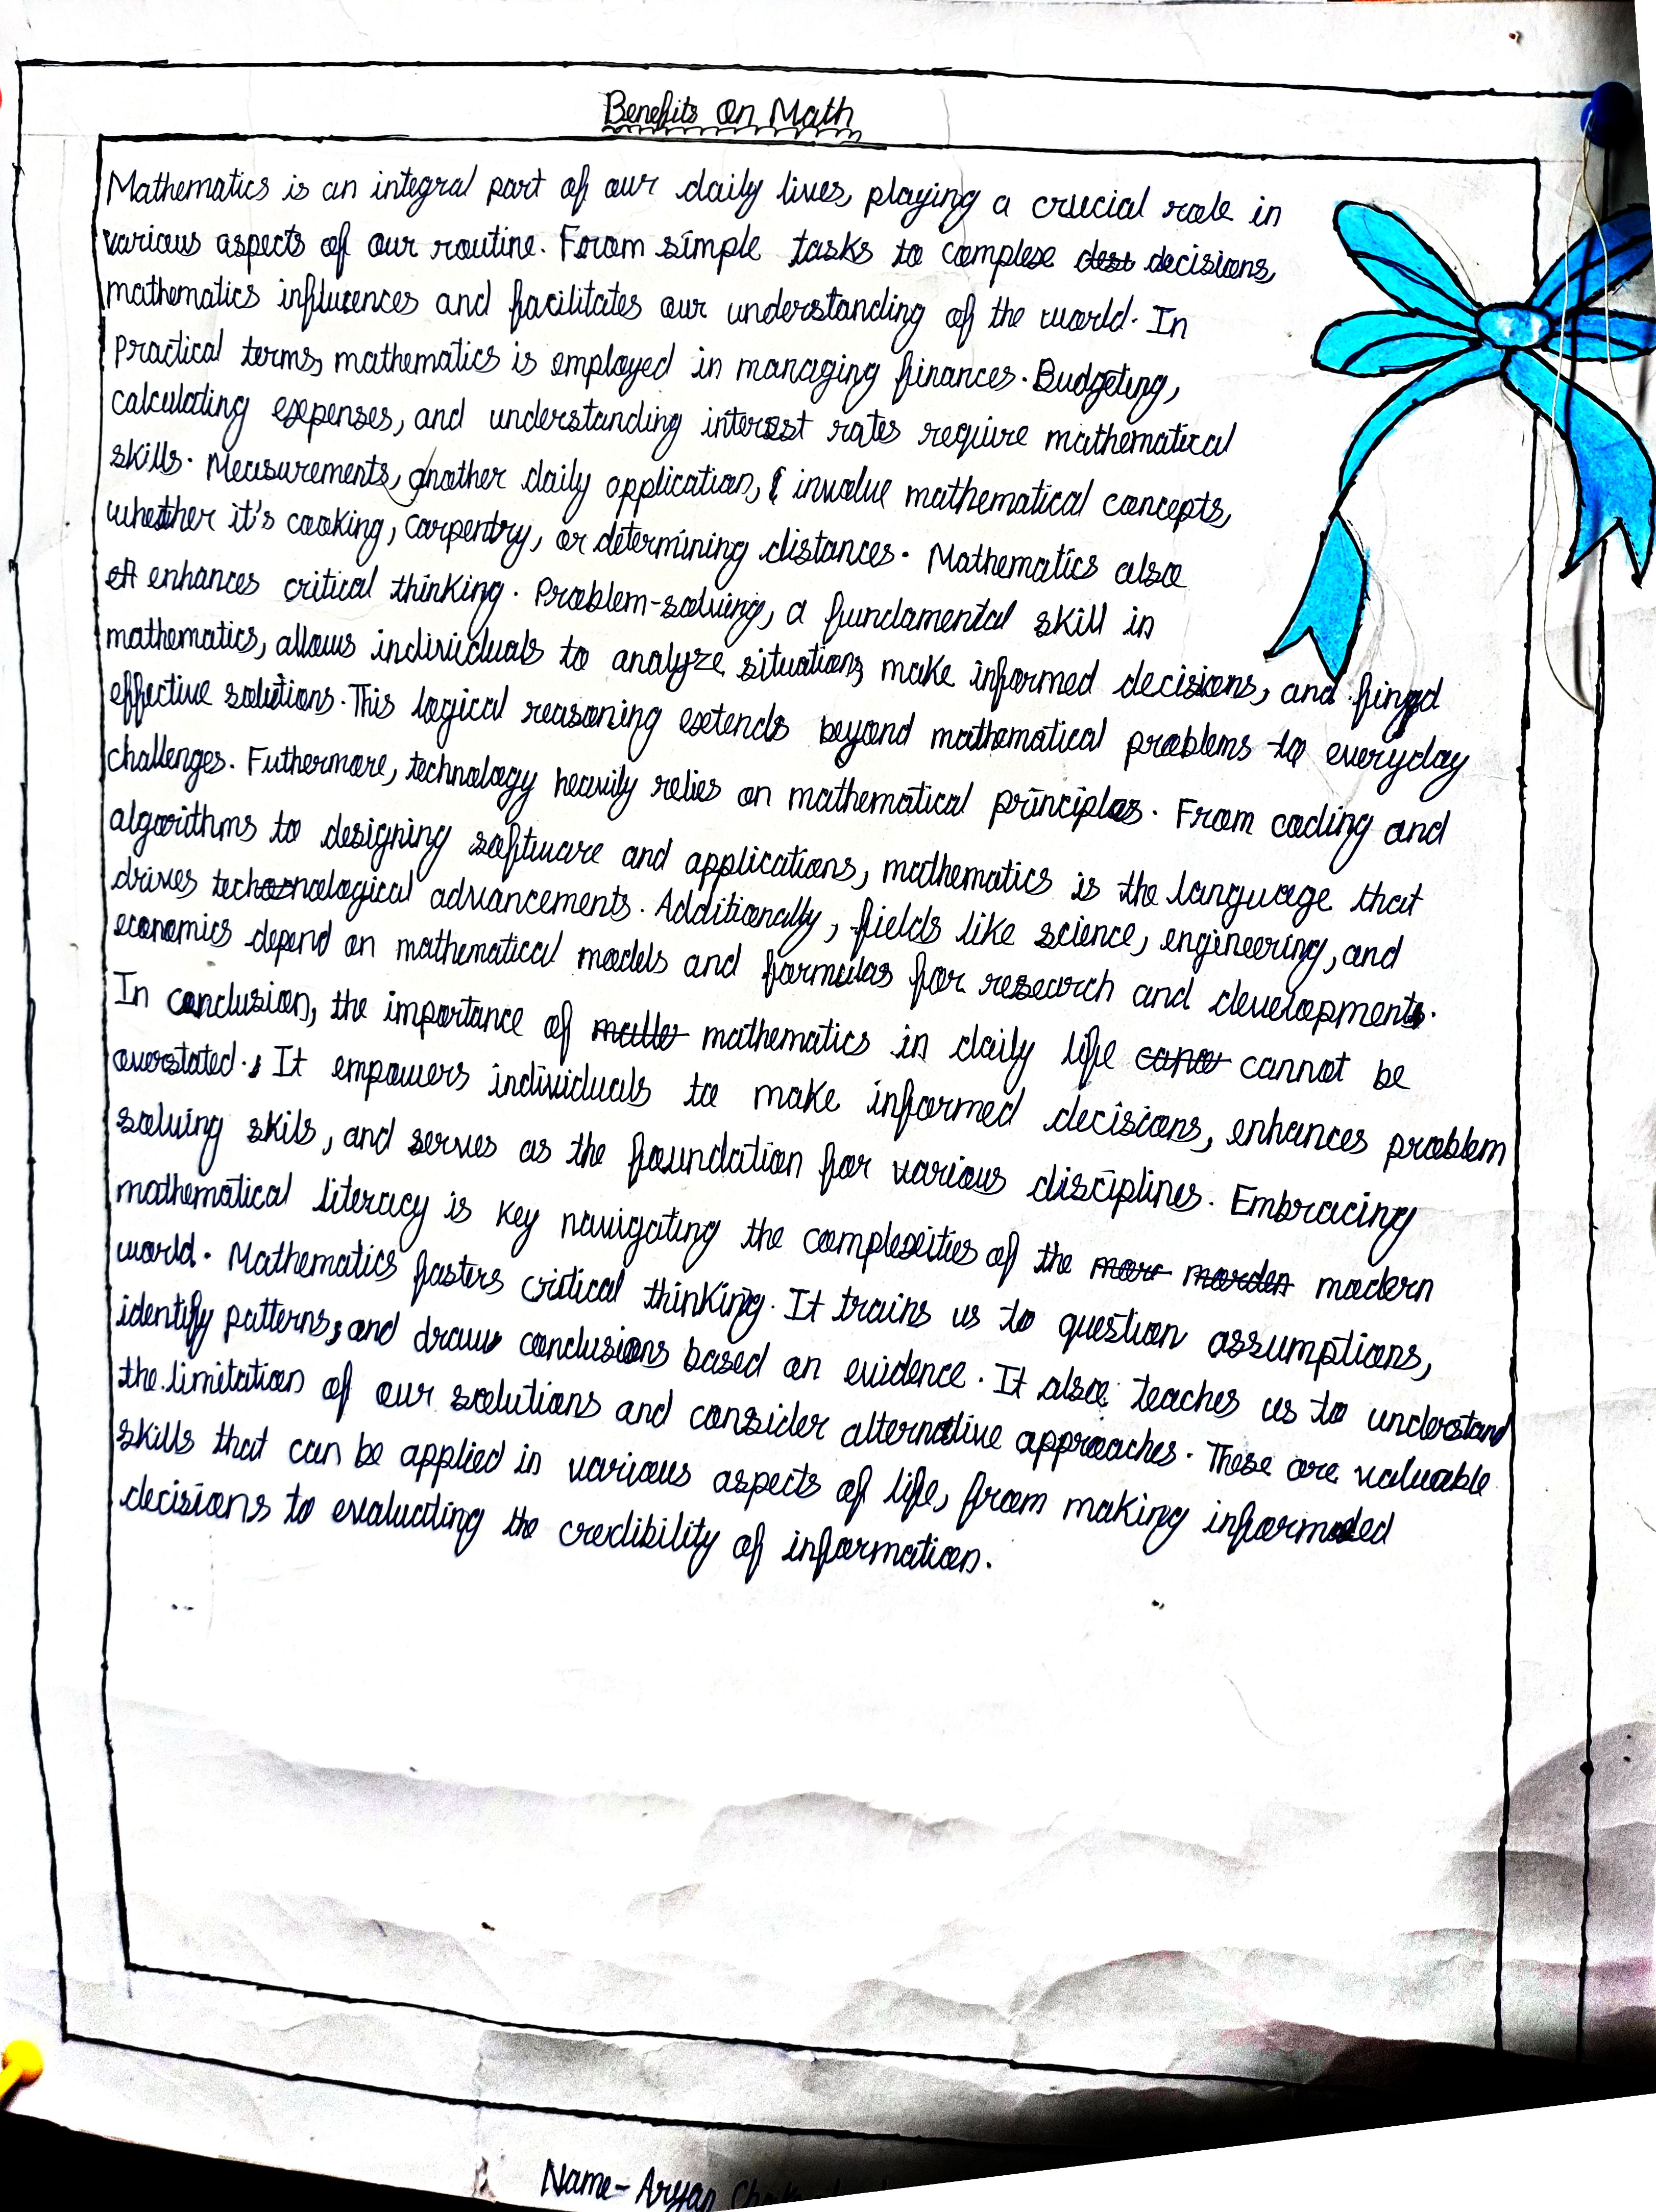 Benefits On Math
Mathematics is an integral part of our daily lives, playing a crucial role in
various aspects of our routine. From simple tasks to complex decisions,
mathematics influences and facilitates our understanding of the world. In
practical terms, mathematics is employed in managing finances. Budgeting,
calculating expenses, and understanding interest rates require mathematical
skills. Measurements, another daily application, involve mathematical concepts,
whether it's cooking, carpentry, or determining distances. Mathematics also
enhances critical thinking. Problem-solving, a fundamental skill in
mathematics, allows individuals to analyze situations, make informed decisions, and find
effective solutions. This logical reasoning extends beyond mathematical problems to everyday
challenges. Futhermore, technology heavily relies on mathematical principles. From coding and
algorithms to designing software and applications, mathematics is the language that
drives technological advancements. Additionally, fields like science, engineering, and
economics depend on mathematical models and formulas for research and developments.
In conclusion, the importance of mathematics in daily life cannot be
overstated. It empowers individuals to make informed decisions, enhances problem
solving skils, and serves as the foundation for various disciplines. Embracing
mathematical literacy is key navigating the complexities of the modern
world. Mathematics fosters critical thinking. It trains us to question assumptions,
identify patterns, and draw conclusions based on evidence. It also teaches us to understand
the limitation of our solutions and consider alternative approaches. These are valuable
skills that can be applied in various aspects of life, from making informed
decisions to evaluating the credibility of information.
Name- Aryan